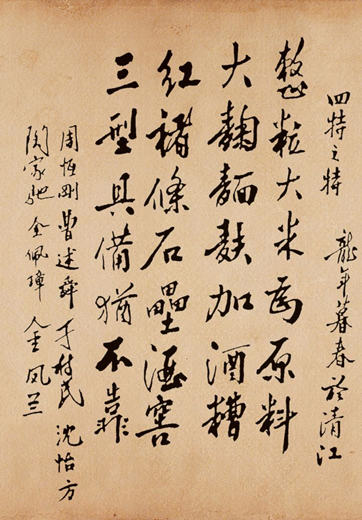 四特之特 龍年暮春於清江
整粒大米为原料
大麴麵麩加酒糟
红褚條石壘酒窖
三型具備猶不靠
周恆刚 曹述舜 于树民 沈怡方
陶家驰 金佩璋 金凤兰